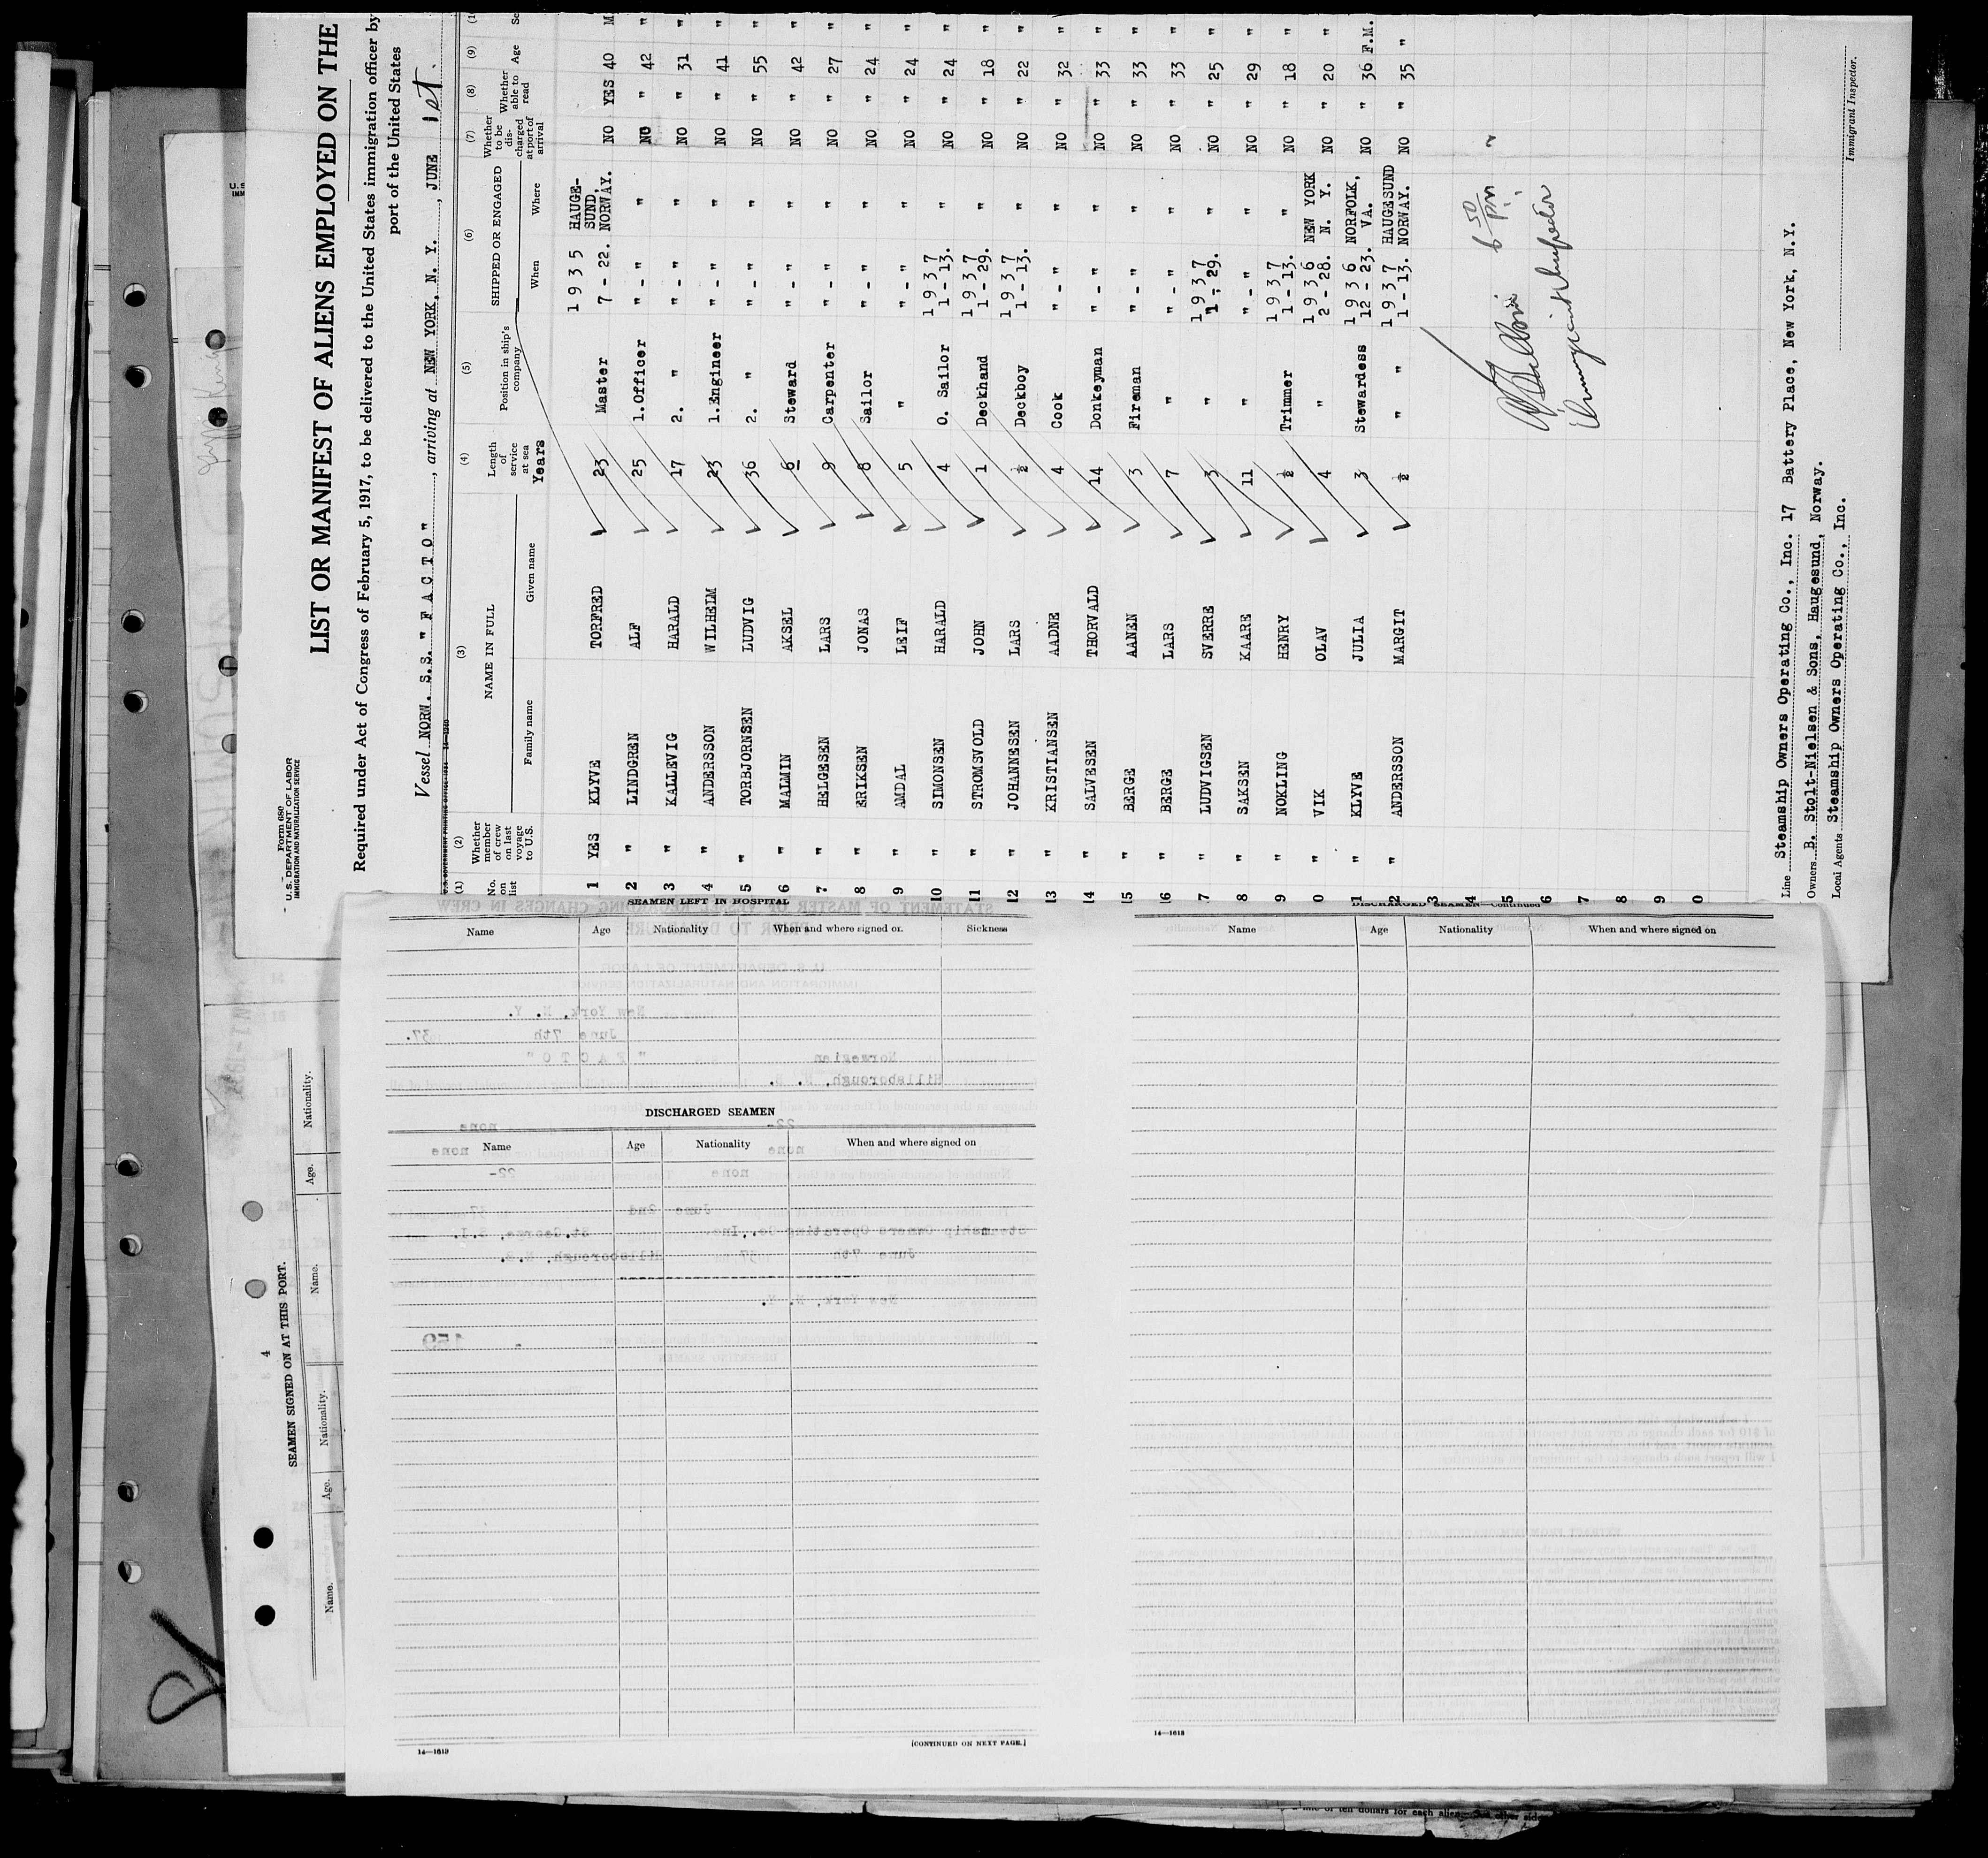 Form 680
U. S. DEPARTMENT OF LABOR
IMMIGRATION AND NATURALIZATION SERVICE
LIST OR MANIFEST OF ALIENS EMPLOYED ON THE
Required under Act of Congress of February 5, 1917, to be delivered to the United States immigration officer by
port of the United States
Vessel NORW. S.S. " F A C T O ", arriving at NEW YORK, N. Y., JUNE 1st.
(1) (2) (3) (4) (5) (6) (7) (8) (9)
No. on list Whether member of crew on last voyage to U.S. NAME IN FULL Family name Given name Length of service at sea Years Position in ship's company SHIPPED OR ENGAGED When Where Whether to be discharged at port of arrival Whether able to read Age Se
1 YES KLYVE TORFRED 23 Master 1935 7 - 22. HAUGE-SUND, NORWAY. NO YES 40 M
2 " LINDGREN ALF 25 1.Officer " - " " NO " 42 "
3 " KALLEVIG HARALD 17 2. " " - " " NO " 31 "
4 " ANDERSSON WILHELM 23 1.Engineer " - " " NO " 41 "
5 " TORBJORNSEN LUDVIG 36 2. " " - " " NO " 55 "
6 " MALMIN AKSEL 6 Steward " - " " NO " 42 "
7 " HELGESEN LARS 9 Carpenter " - " " NO " 27 "
8 " ERIKSEN JONAS 8 Sailor " - " " NO " 24 "
9 " AMDAL LEIF 5 " " - " " NO " 24 "
10 " SIMONSEN HARALD 4 O. Sailor 1937 1 - 13. " NO " 24 "
11 " STROMSVOLD JOHN 1 Deckhand 1937 1 - 29. " NO " 18 "
12 " JOHANNESEN LARS ½ Deckboy 1937 1 - 13. " NO " 22 "
13 " KRISTIANSEN AADNE 4 Cook " - " " NO " 32 "
14 " SALVESEN THORVALD 14 Donkeyman " - " " NO " 33 "
15 " BERGE AANEN 3 Fireman " - " " NO " 33 "
16 " BERGE LARS 7 " " - " " NO " 33 "
7 " LUDVIGSEN SVERRE 3 " 1937 1 - 29. " NO " 25 "
8 " SAKSEN KAARE 11 " " - " " NO " 29 "
9 " NOKLING HENRY ½ Trimmer 1937 1 - 13. " NO " 18 "
0 " VIK OLAV 4 " 1936 2 - 28. NEW YORK N. Y. NO " 20 "
1 " KLYVE JULIA 3 Stewardess 1936 12 - 23. NORFOLK, VA. NO " 36 F.M.
2 " ANDERSSON MARGIT ½ " " 1937 1 - 13. HAUGESUND NORWAY. NO " 35 "
3
4
5
6
7
8
9
0
6 50 P.M.
Immigrant Inspector
Line Steamship Owners Operating Co., Inc. 17 Battery Place, New York, N.Y.
Owners B. Stolt-Nielsen & Sons, Haugesund, Norway.
Local Agents Steamship Owners Operating Co., Inc.
Immigrant Inspector.
SEAMEN LEFT IN HOSPITAL
Name Age Nationality When and where signed on Sickness
DISCHARGED SEAMEN
Name Age Nationality When and where signed on
14—1613
[CONTINUED ON NEXT PAGE.]
DISCHARGED SEAMEN—Continued
Name Age Nationality When and where signed on
14—1613
4
SEAMEN SIGNED ON AT THIS PORT.
Name. Age. Nationality. Name. Age. Nationality.
of ten dollars for each alien. See other side